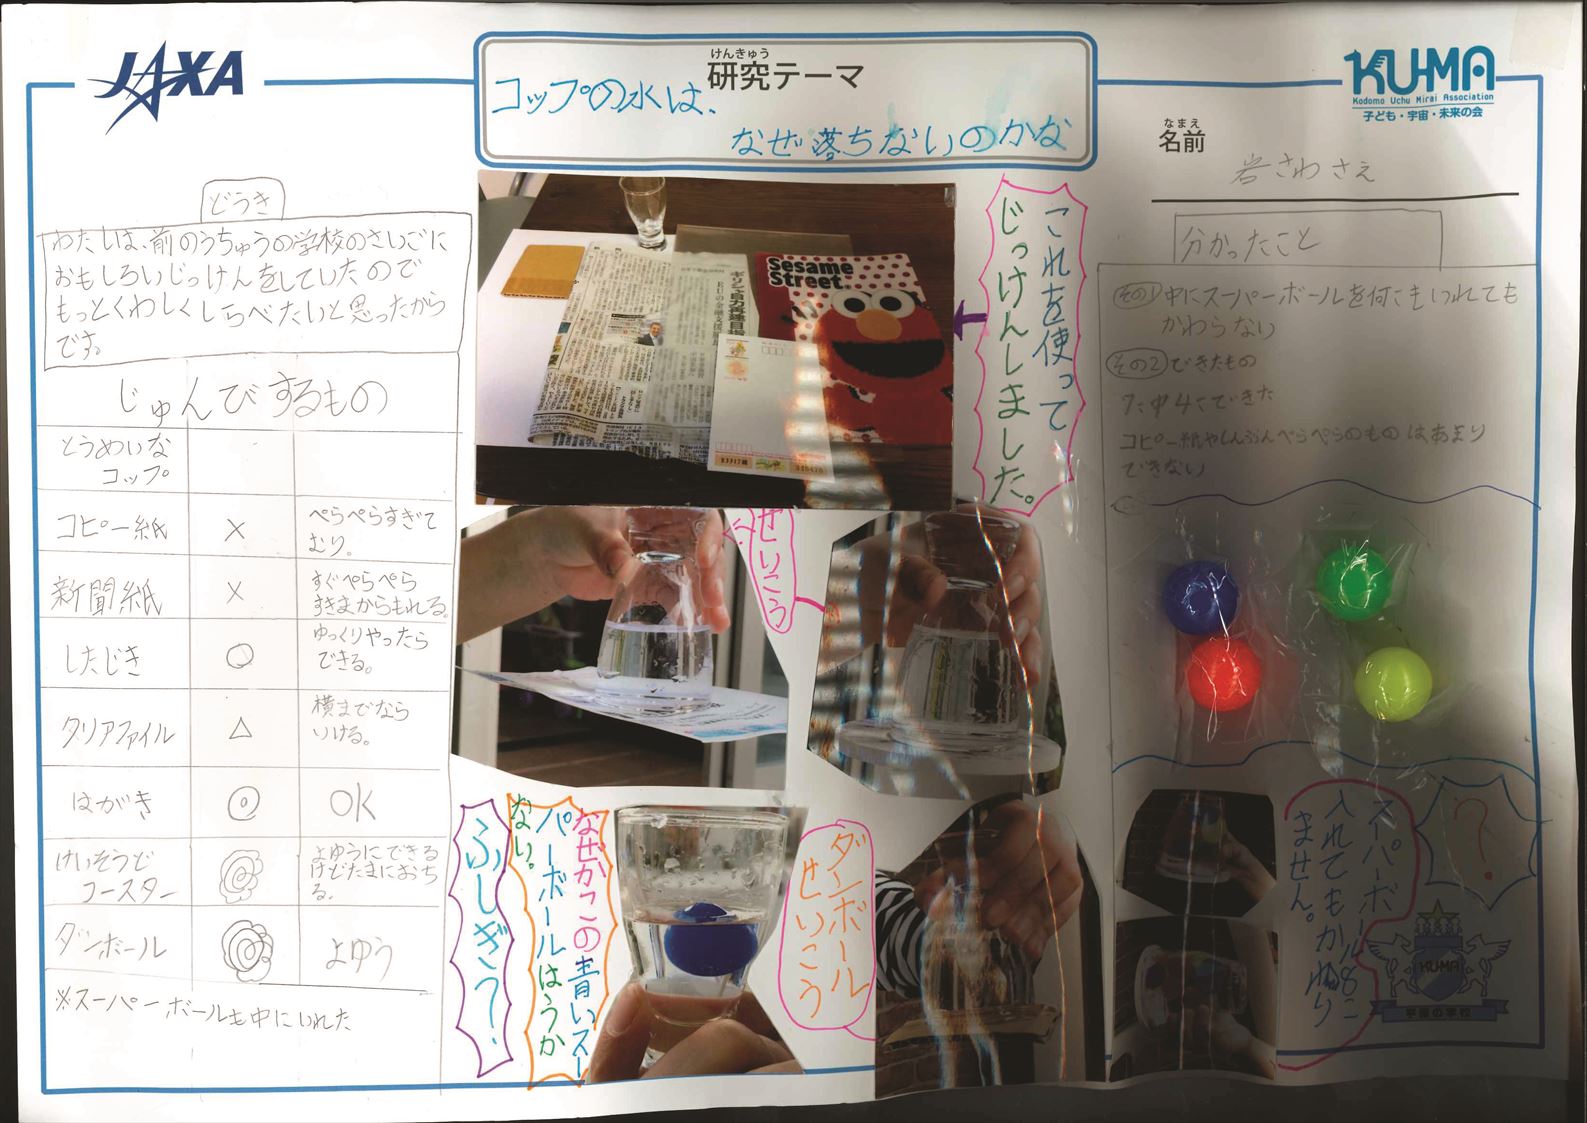 JAXA
けんきゅう
研究テーマ
コップの水は、
なぜ落ちないのかな
KU-MA
Kodomo Uchu Mirai Association
子ども・宇宙・未来の会
なまえ
名前
岩さわ さえ
どうき
わたしは、前のうちゅうの学校のさいごに
おもしろいじっけんをしていたので
もっとくわしくしらべたいと思ったから
です。
じゅんびするもの
とうめいな
コップ
コピー紙 × ぺらぺらすぎて
むり。
新聞紙 × すぐぺらぺら
すきまからもれる。
したじき ○ ゆっくりやったら
できる。
クリアファイル △ 横までなら
いける。
はがき ◎ OK
けいそうど
コースター
よゆうにできる
けどたまにおち
る。
ダンボール よゆう
※スーパーボールも中にいれた
Sesame
Street
ギリシャ自力再建目指
これを使って
じっけんしました。
せいこう
なぜかこの青いスー
パーボールはうか
ない。
ふしぎう?
ダンボール
せいこう
分かったこと
その1 中にスーパーボールを何こもいれても
かわらない
その2 できたもの
7こ中4こできた
コピー紙やしんぶんぺらぺらのものはあまり
できない
スーパーボール8こ
入れてもかわり
ません。
?
KU-MA
宇宙の学校